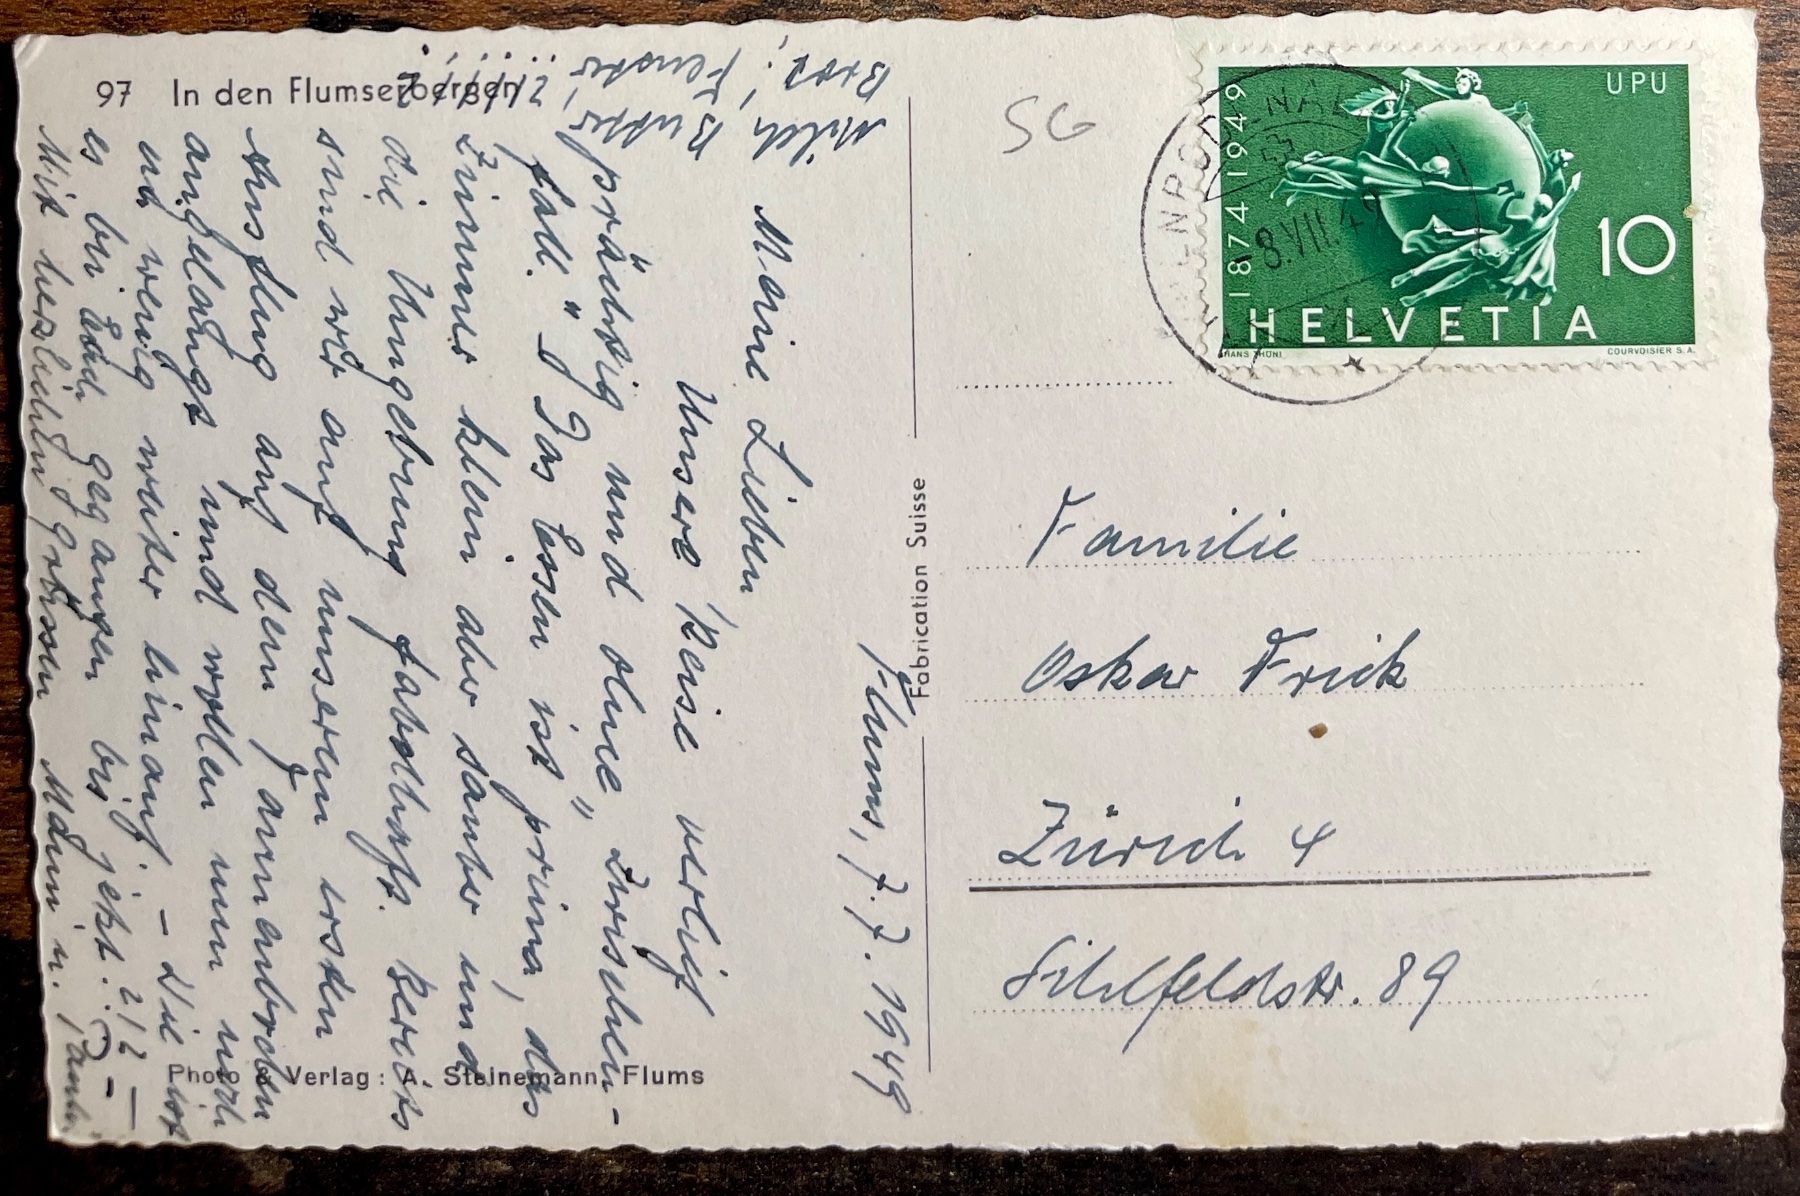 97 In den Flumserbergen
Milch Butter, 2/1/1/2
Brot! Fenster,
Flums, 7.7.1949
Meine Lieben
Unsere Reise verlief
prächtig und ohne „Zwischen-
fall." Das Essen ist prima, das
Zimmer klein aber sauber und
die Umgebung fabelhaft. Bereits
sind wir auf unserem ersten
Ausflug auf dem
angelangt und wollen nun noch
ein wenig weiter hinauf. – Wie ist
es bei Euch gegangen bis jetzt?
Mit herzlichen Grüssen Mami u. Papi
Photo & Verlag: A. Steinemann, Flums
Fabrication Suisse
SG
UPU
1874 1949
10
HELVETIA
HANS THÖNI
COURVOISIER S.A.
8.VII.49
Familie
Oskar Frick
Zürich 4
Sihlfeldstr. 89